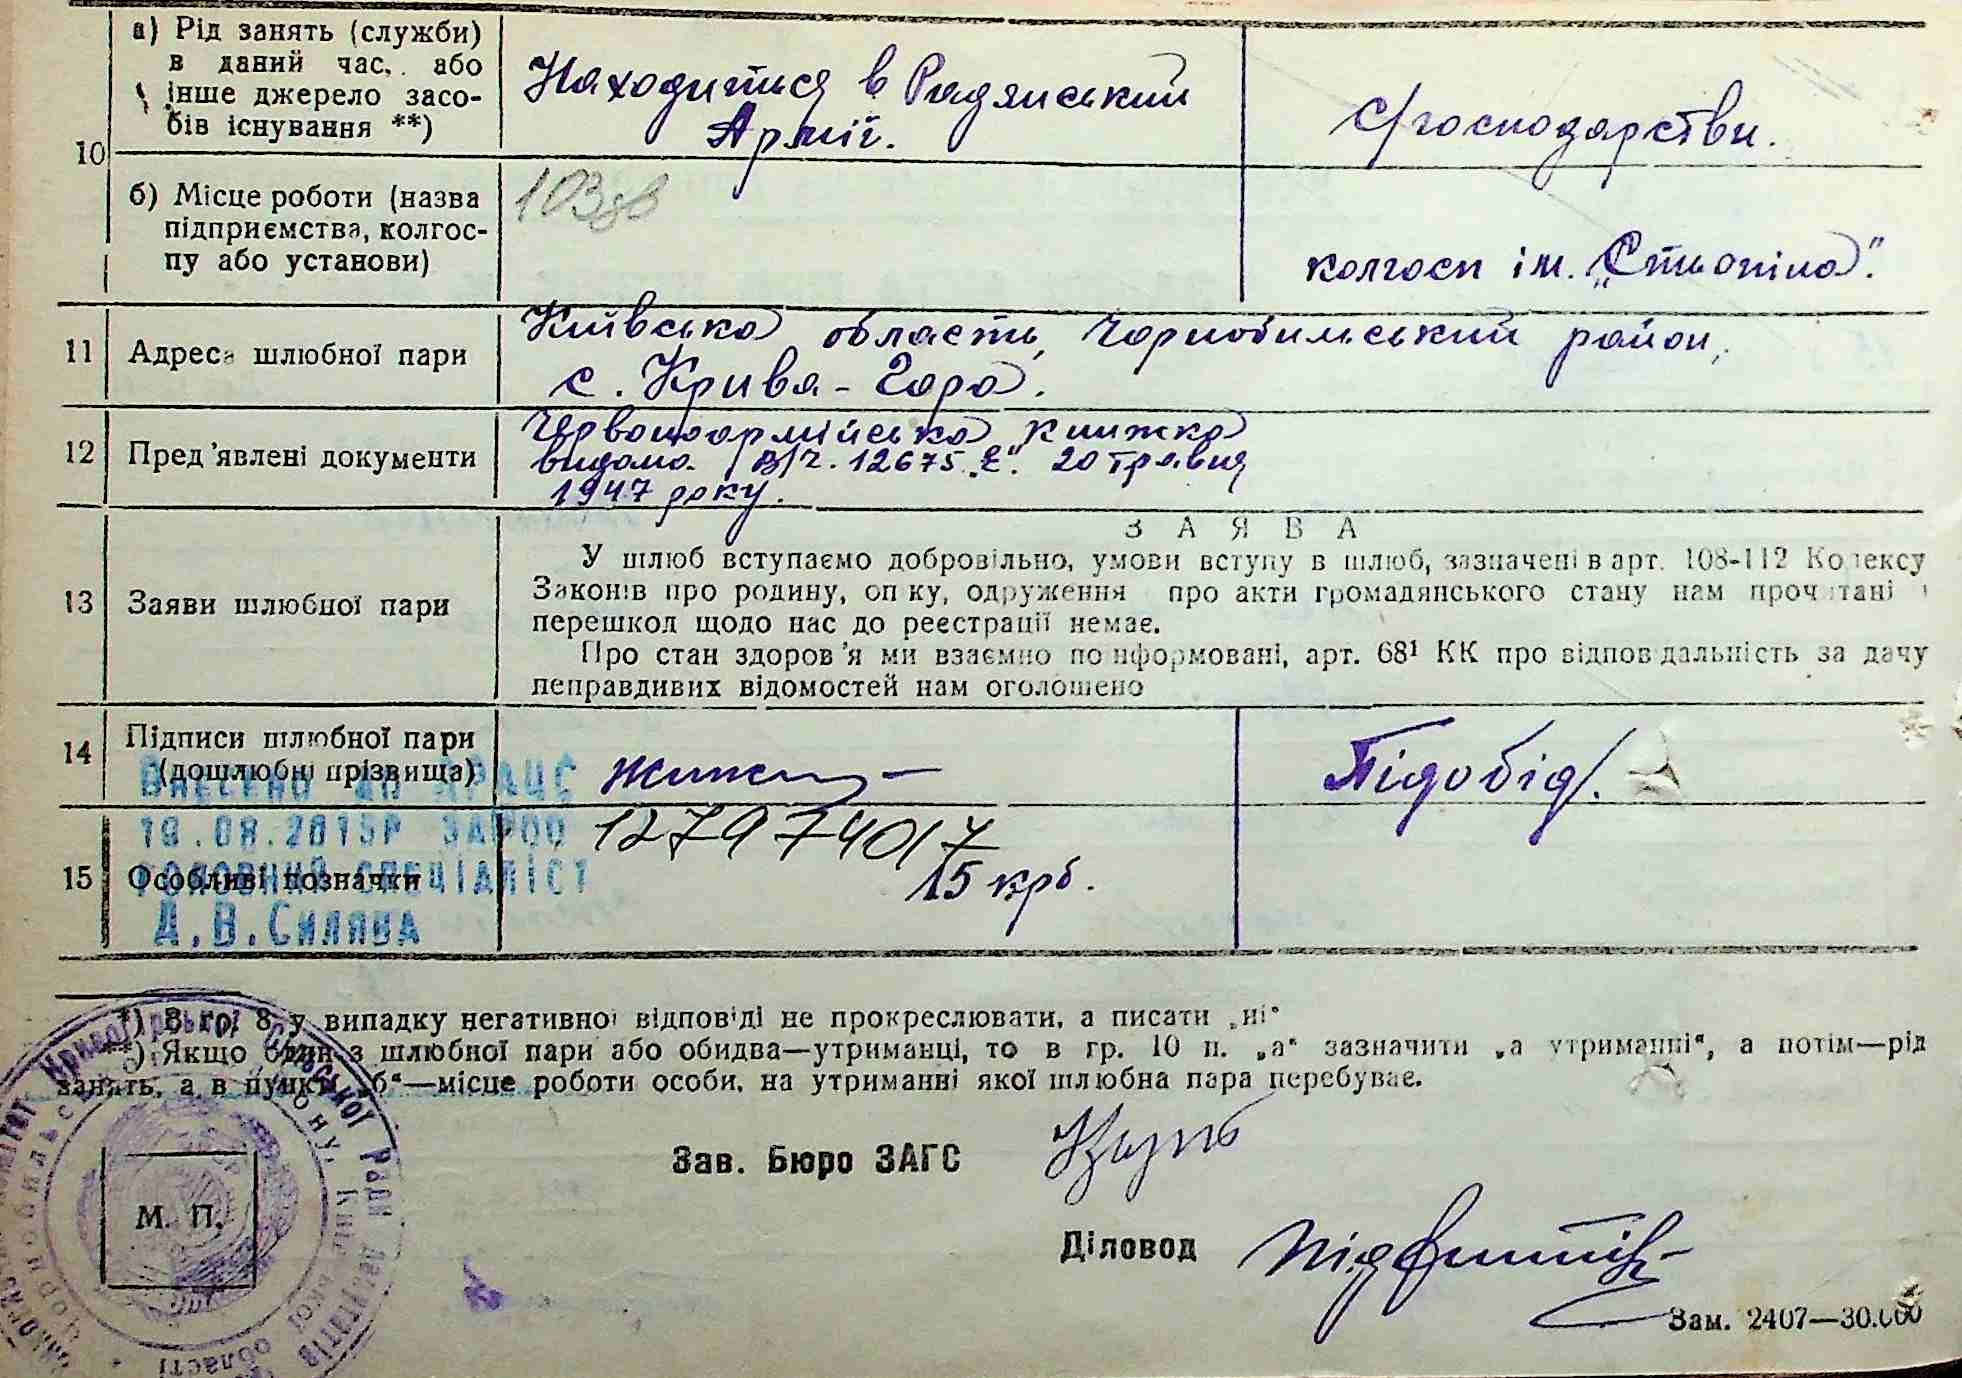 а) Рід занять (служби)
в даний час, або
інше джерело засо-
бів існування **)
Находиться в Радянський
Армії.
с/господарстви.
10
б) Місце роботи (назва
підприємства, колгос-
пу або установи)
колгосп ім. „Стьопіна".
11
Адреса шлюбної пари
Київська область, Чорнобильський район,
с. Крива-Гора.
12
Пред'явлені документи
Червоноармійська книжка
видана В/Ч. 12675 „Е". 20 травня
1947 року.
13
Заяви шлюбної пари
ЗАЯВА
У шлюб вступаємо добровільно, умови вступу в шлюб, зазначені в арт. 108-112 Кодексу
Законів про родину, опіку, одруження про акти громадянського стану нам прочитані і
перешкод щодо нас до реєстрації немає.
Про стан здоров'я ми взаємно поінформовані, арт. 68¹ КК про відповідальність за дачу
неправдивих відомостей нам оголошено
14
Підписи шлюбної пари
(дошлюбні прізвища)
Підобід
Внесено до ДРАЦС
19.08.2015р
Головний спеціаліст
Д.В.Силява
15
Особливі позначки
127974017
15 крб.
*) В гр. 8 у випадку негативної відповіді не прокреслювати, а писати „ні"
**) Якщо один з шлюбної пари або обидва—утриманці, то в гр. 10 п. „а" зазначити „а утриманні", а потім—рід
занять, а в пункті „б"—місце роботи особи, на утриманні якої шлюбна пара перебуває.
Зав. Бюро ЗАГС
Діловод
М. П.
Кривогірської Сільської Ради депутатів
Київської області
Зам. 2407—30.000